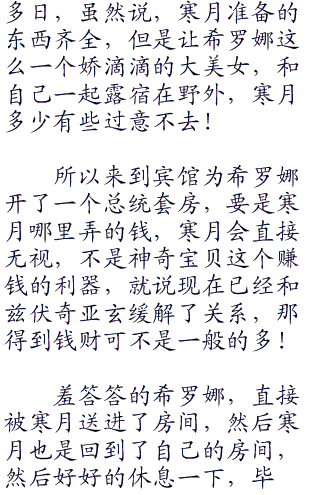 多日，虽然说，寒月准备的
东西齐全，但是让希罗娜这
么一个娇滴滴的大美女，和
自己一起露宿在野外，寒月
多少有些过意不去！
所以来到宾馆为希罗娜
开了一个总统套房，要是寒
月哪里弄的钱，寒月会直接
无视，不是神奇宝贝这个赚
钱的利器，就说现在已经和
兹伏奇亚玄缓解了关系，那
得到钱财可不是一般的多！
羞答答的希罗娜，直接
被寒月送进了房间，然后寒
月也是回到了自己的房间，
然后好好的休息一下，毕